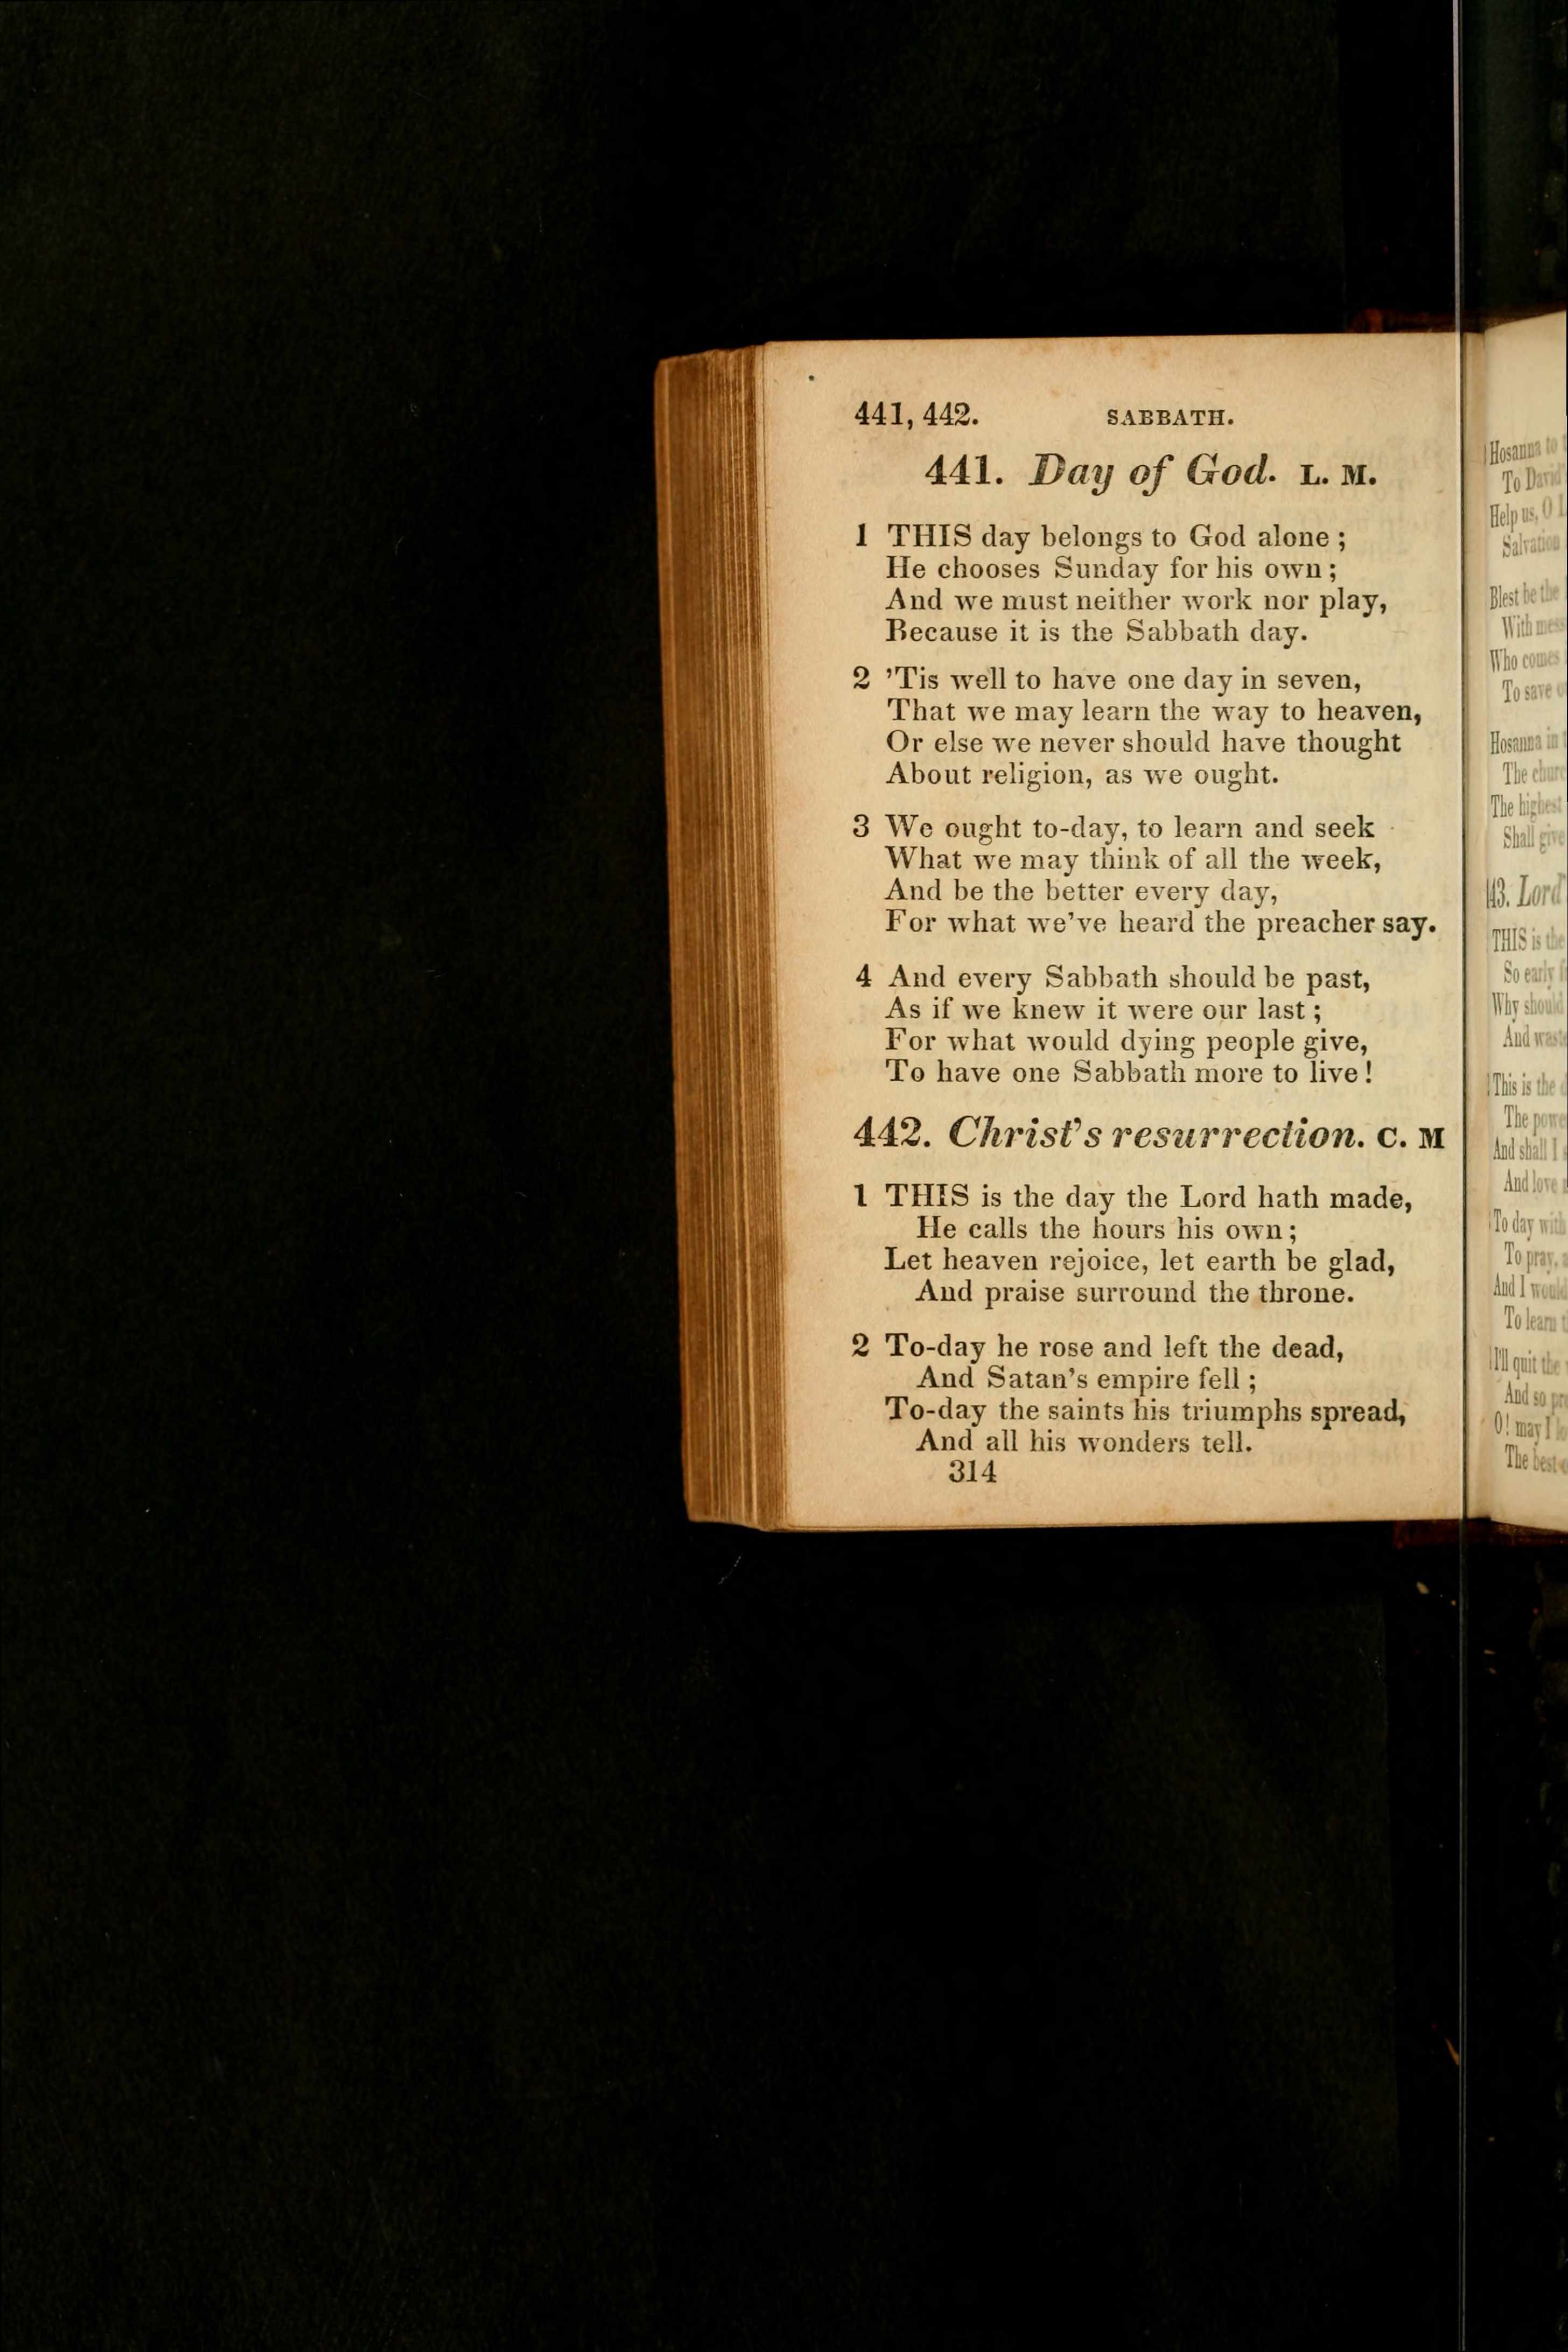 441, 442. SABBATH.
441. Day of God. L. M.
1 THIS day belongs to God alone;
He chooses Sunday for his own;
And we must neither work nor play,
Because it is the Sabbath day.
2 'Tis well to have one day in seven,
That we may learn the way to heaven,
Or else we never should have thought
About religion, as we ought.
3 We ought to-day, to learn and seek
What we may think of all the week,
And be the better every day,
For what we've heard the preacher say.
4 And every Sabbath should be past,
As if we knew it were our last;
For what would dying people give,
To have one Sabbath more to live!
442. Christ's resurrection. C. M
1 THIS is the day the Lord hath made,
He calls the hours his own;
Let heaven rejoice, let earth be glad,
And praise surround the throne.
2 To-day he rose and left the dead,
And Satan's empire fell;
To-day the saints his triumphs spread,
And all his wonders tell.
314
Hosanna to
To David
Help us, O
Salvation
Blest be the
With
Who comes
To save
Hosanna in
The
The highest
Shall give
43. Lord
THIS is the
So early
Why should
And
This is the
The
And shall I
And love
To day with
To pray,
And I would
To learn
I'll quit the
And so
O! may I
The best